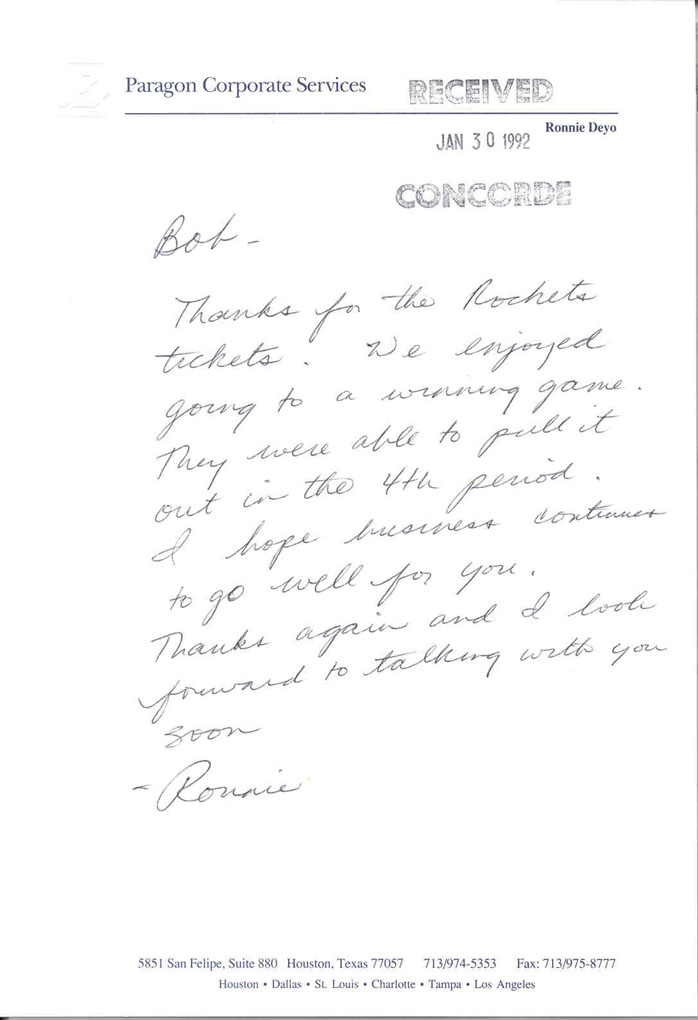 Paragon Corporate Services
RECEIVED
Ronnie Deyo
JAN 30 1992
CONCORDE
Bob -
Thanks for the Rockets
tickets. We enjoyed
going to a winning game.
They were able to pull it
out in the 4th period.
I hope business continues
to go well for you.
Thanks again and I look
forward to talking with you
soon
- Ronnie
5851 San Felipe, Suite 880 Houston, Texas 77057 713/974-5353 Fax: 713/975-8777
Houston • Dallas • St. Louis • Charlotte • Tampa • Los Angeles